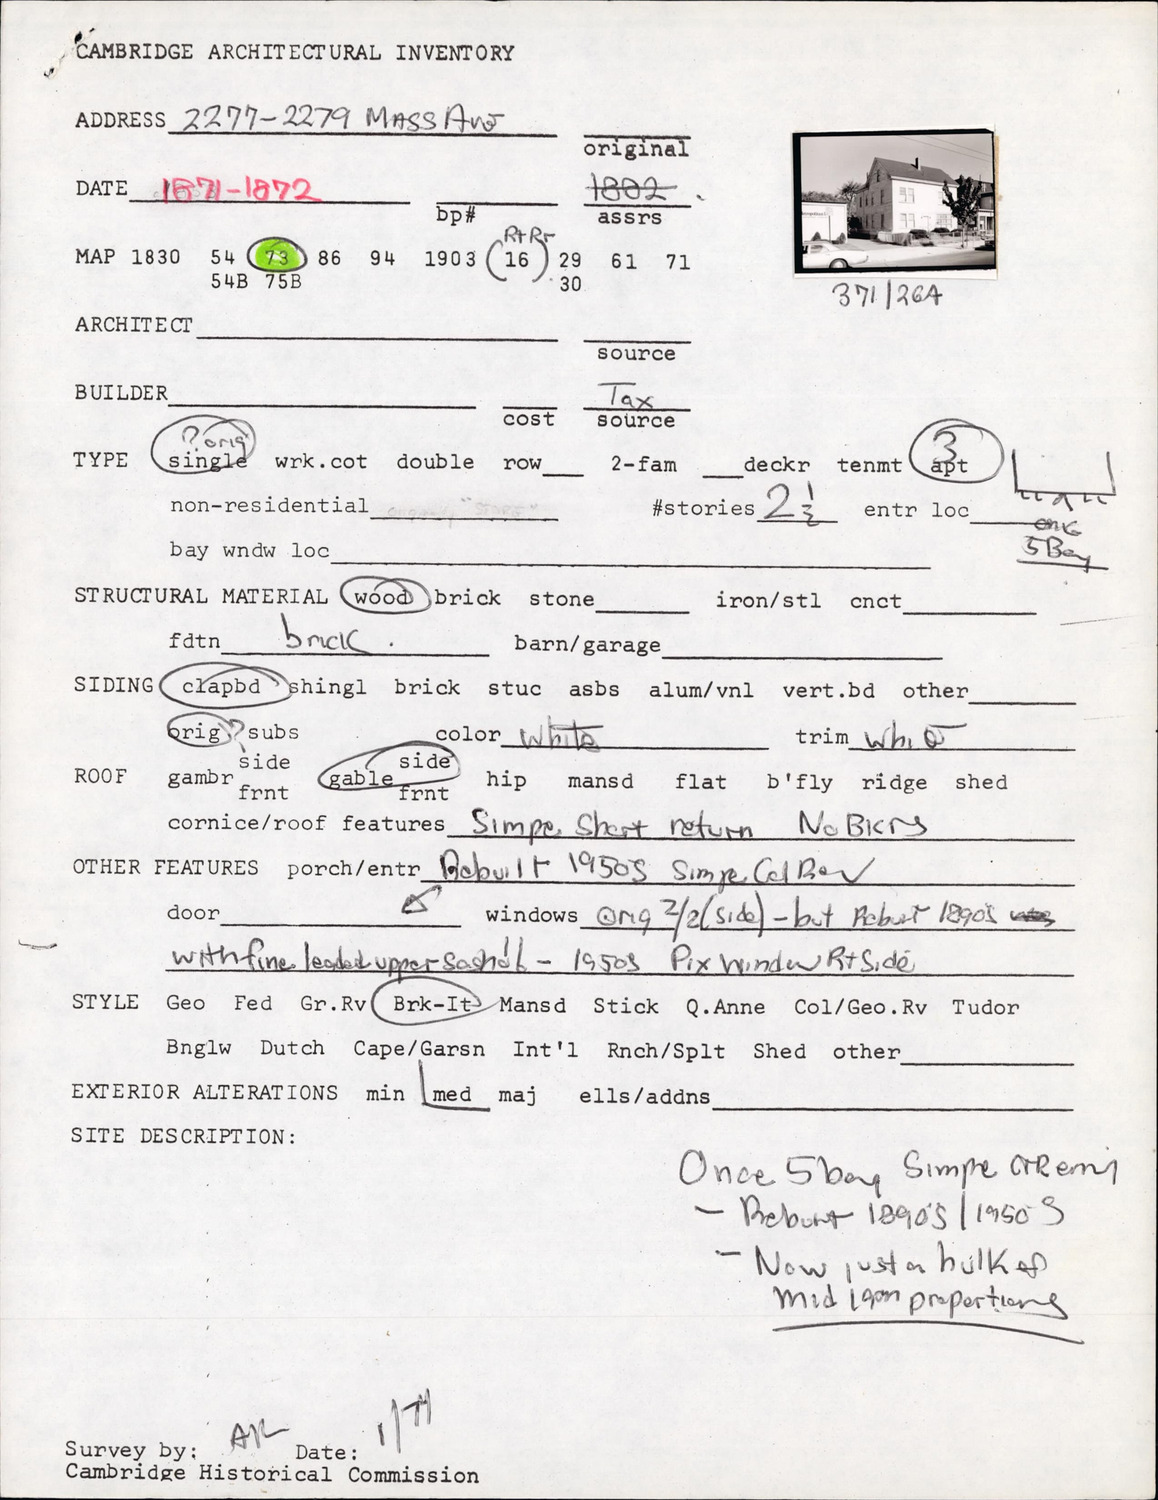 CAMBRIDGE ARCHITECTURAL INVENTORY
ADDRESS 2277-2279 MASS Ave
original
DATE 1871-1872 1882
bp# assrs
Rt Rr
MAP 1830 54 73 86 94 1903 (16) 29 61 71
54B 75B 30
371/26A
ARCHITECT
source
BUILDER Tax
cost source
? orig 3
TYPE single wrk.cot double row 2-fam deckr tenmt apt
non-residential "STORE" #stories 2 1/2 entr loc
5 Bay
bay wndw loc
STRUCTURAL MATERIAL wood brick stone iron/stl cnct
fdtn brick. barn/garage
SIDING clapbd shingl brick stuc asbs alum/vnl vert.bd other
orig ? subs color White trim White
side side
ROOF gambr gable hip mansd flat b'fly ridge shed
frnt frnt
cornice/roof features Simple Short return No Bkts
OTHER FEATURES porch/entr Rebuilt 1950s Simple Col Rev
door windows Orig 2/2 (side) - but Rebuilt 1890s
with fine leaded upper sash - 1950s Pix Window Rt Side
STYLE Geo Fed Gr.Rv Brk-It Mansd Stick Q.Anne Col/Geo.Rv Tudor
Bnglw Dutch Cape/Garsn Int'l Rnch/Splt Shed other
EXTERIOR ALTERATIONS min med maj ells/addns
SITE DESCRIPTION:
Once 5 bay Simple
- Rebuilt 1890's/1950's
- Now just a hulk of
mid 19th proportions
Survey by: Date: 1/77
Cambridge Historical Commission